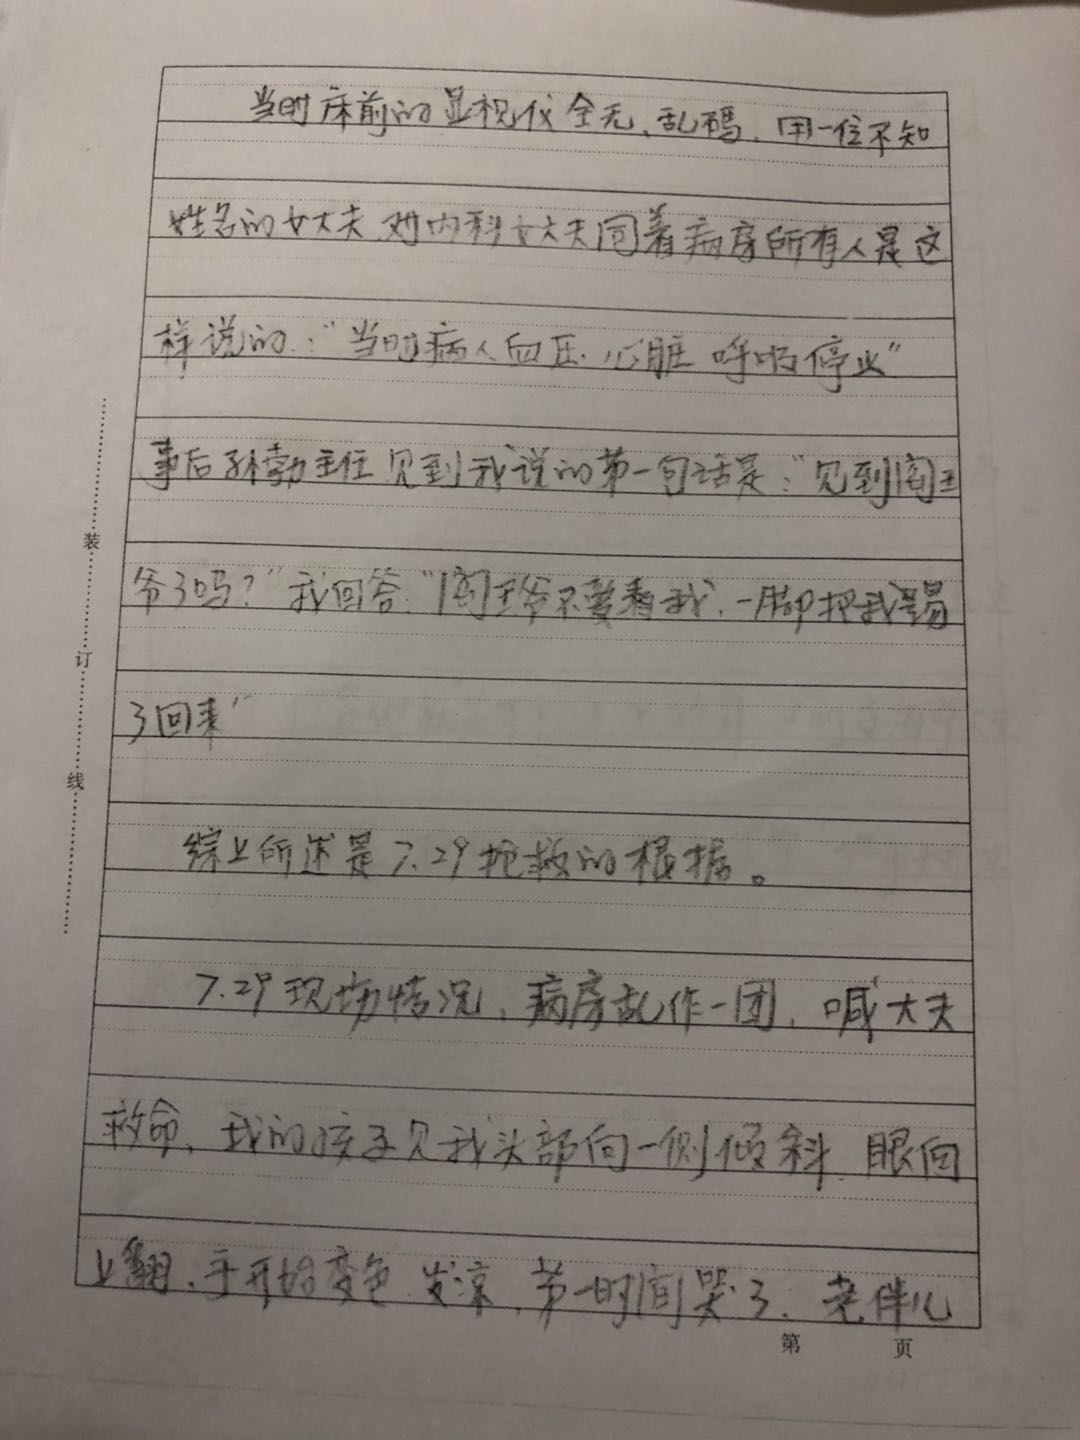 当时床前的显视仪全无、乱码，用一位不知
姓名的女大夫对内科女大夫同着病房所有人是这
样说的：“当时病人血压、心脏 呼吸停止”
事后孙勃主任见到我说的第一句话是：“见到阎王
爷了吗？”我回答：“阎王爷不要看我，一脚把我踢
了回来”
综上所述是7.29抢救的根据。
7.29现场情况，病房乱作一团，喊大夫
救命，我的孩子见我头部向一侧倾斜、眼向
上翻，手开始变色、发凉，第一时间哭了，老伴儿
装
订
线
第 页